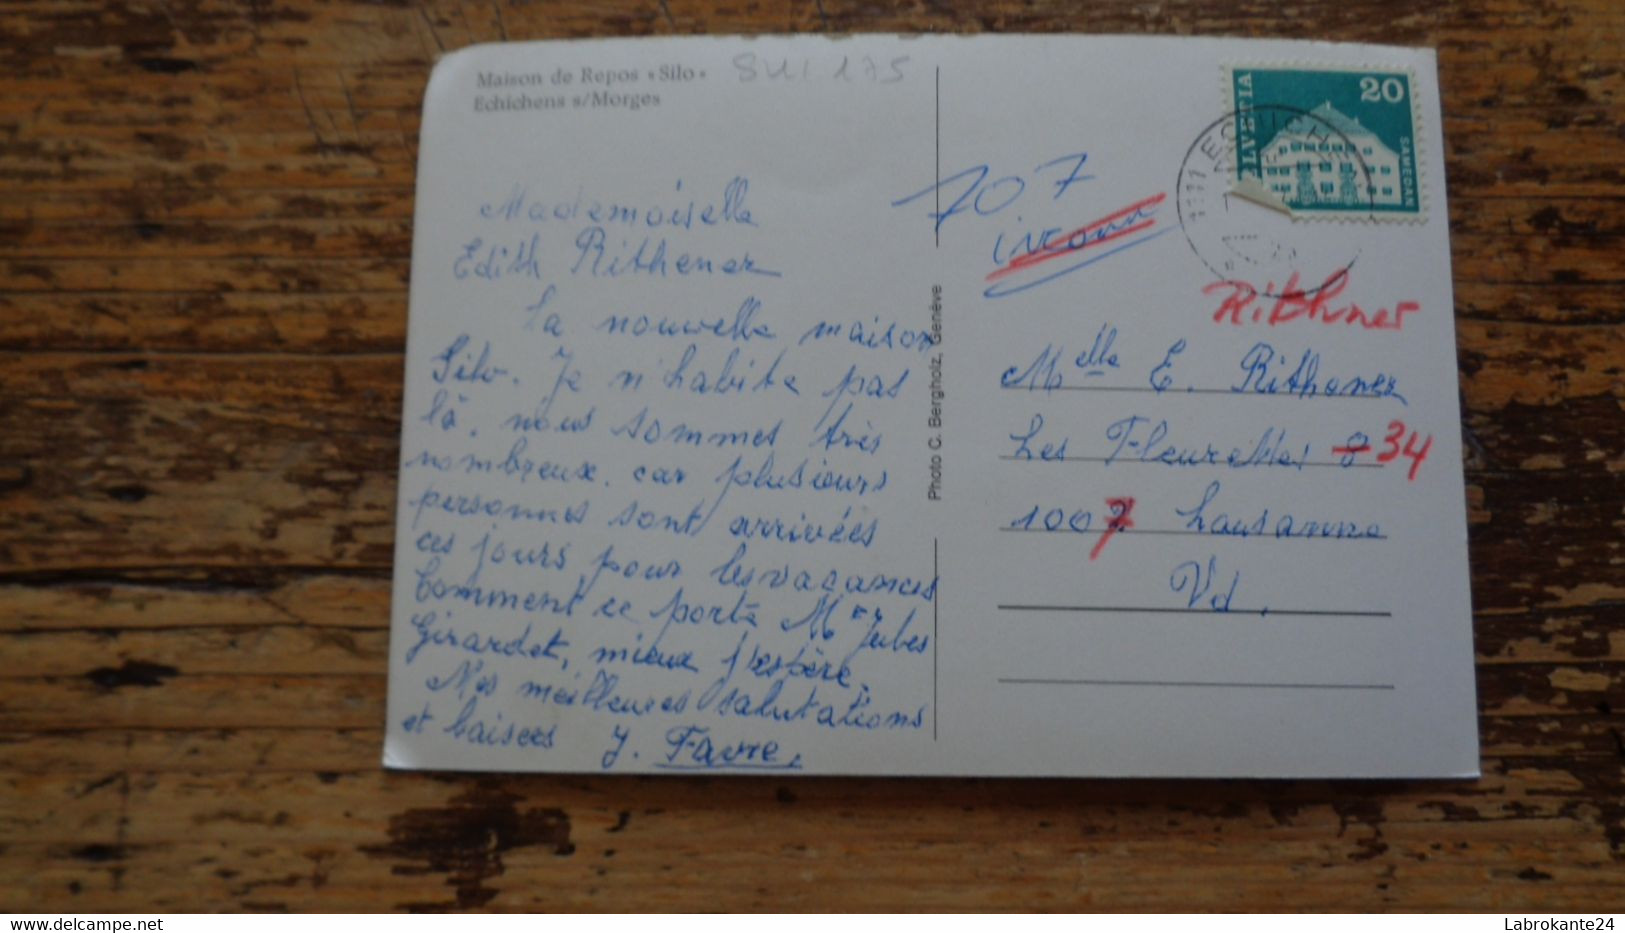 Maison de Repos «Silo»
Echichens s/Morges
SUI 175
Mademoiselle
Edith Rithener
La nouvelle maison
Silo. Je n'habite pas
là, nous sommes très
nombreux. car plusieurs
personnes sont arrivées
ces jours, pour les vacances
Comment ce porte Mme Jules
Girardet, mieux j'espère.
Mes meilleures salutations
et baisers J. Favre.
Photo C. Bergholz, Genève
707
inconnu
HELVETIA
20
SAMEDAN
1111 ECHICHENS
Rithner
Melle E. Rithener
Les Fleurettes 8 34
1007 Lausanne
Vd.
Labrokante24